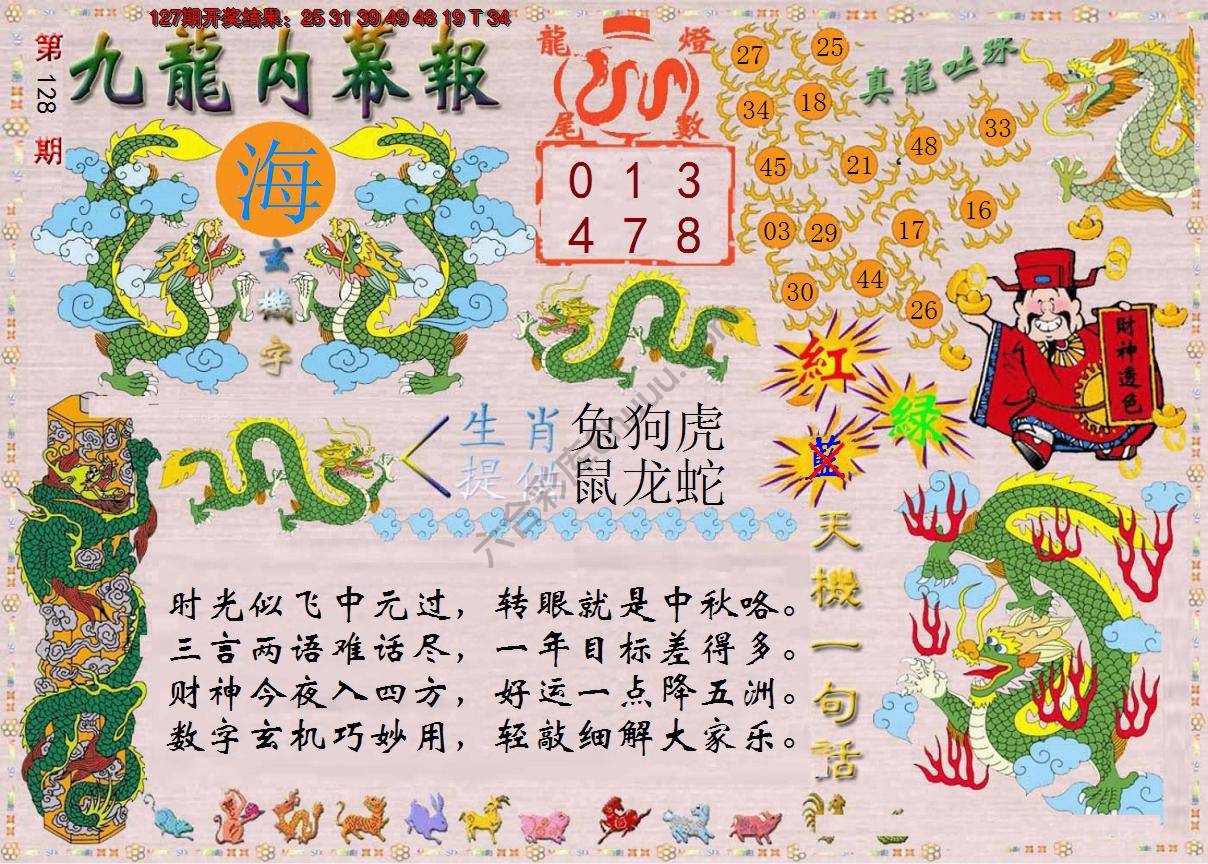 127期开奖结果：25 31 39 49 48 19 T 34
第128期
九龍内幕報
海
玄機字
龍燈
尾數
0 1 3
4 7 8
真龍吐珠
27 25
34 18
45 21 48 33
03 29 17 16
30 44 26
財神透色
紅
綠
藍
生肖 兔狗虎
提供 鼠龙蛇
天機一句話
时光似飞中元过，转眼就是中秋咯。
三言两语难话尽，一年目标差得多。
财神今夜入四方，好运一点降五洲。
数字玄机巧妙用，轻敲细解大家乐。